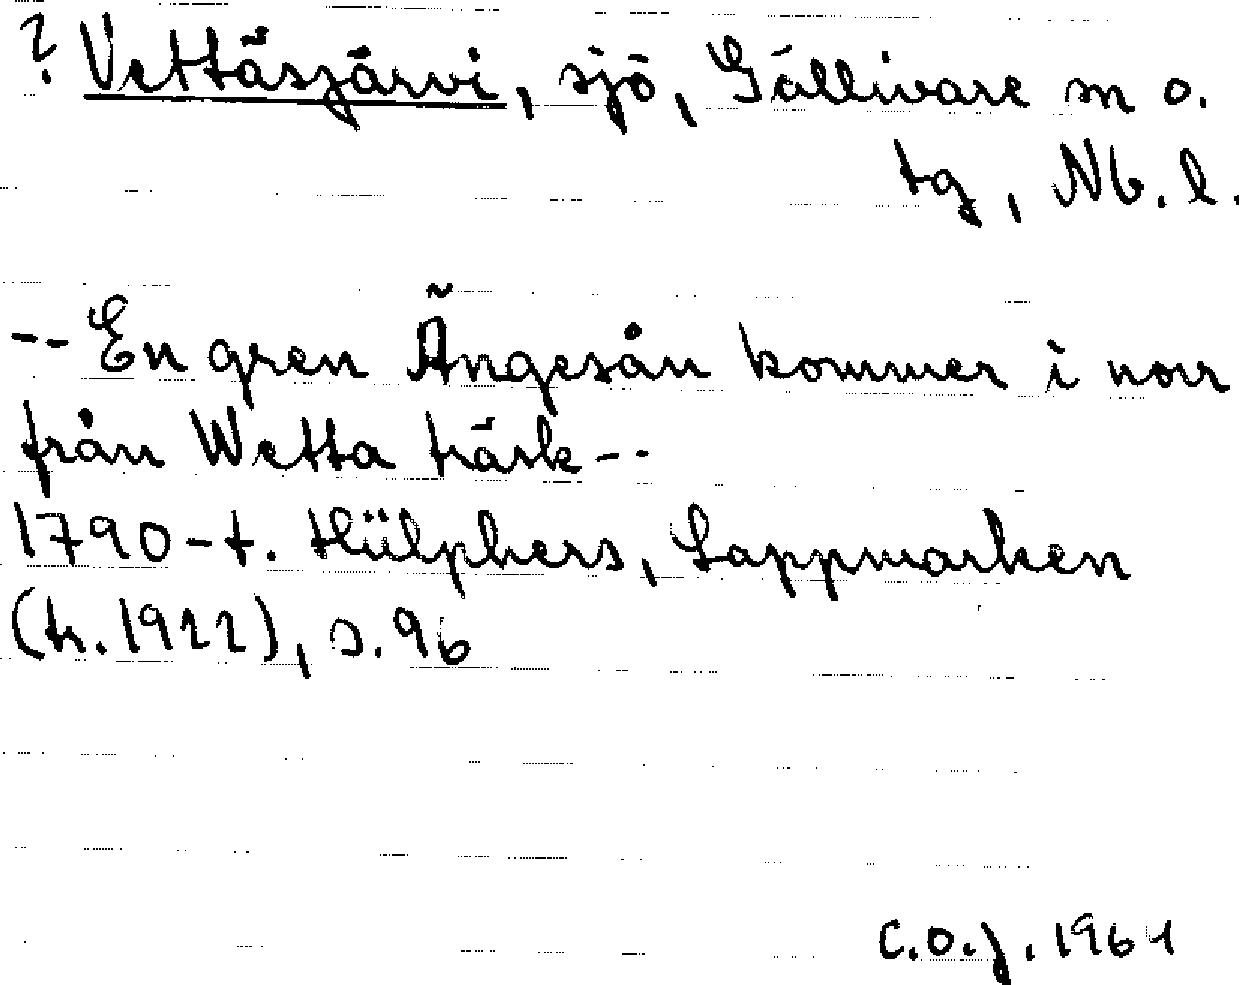 ? Vettäsjärvi, sjö, Gällivare sn o.
tg, Nb. l.
-- En gren Ängesån kommer i norr
från Wetta träsk --
1790-t. Hülphers, Lappmarken
(tr. 1922), s. 96
C.O.J. 1961